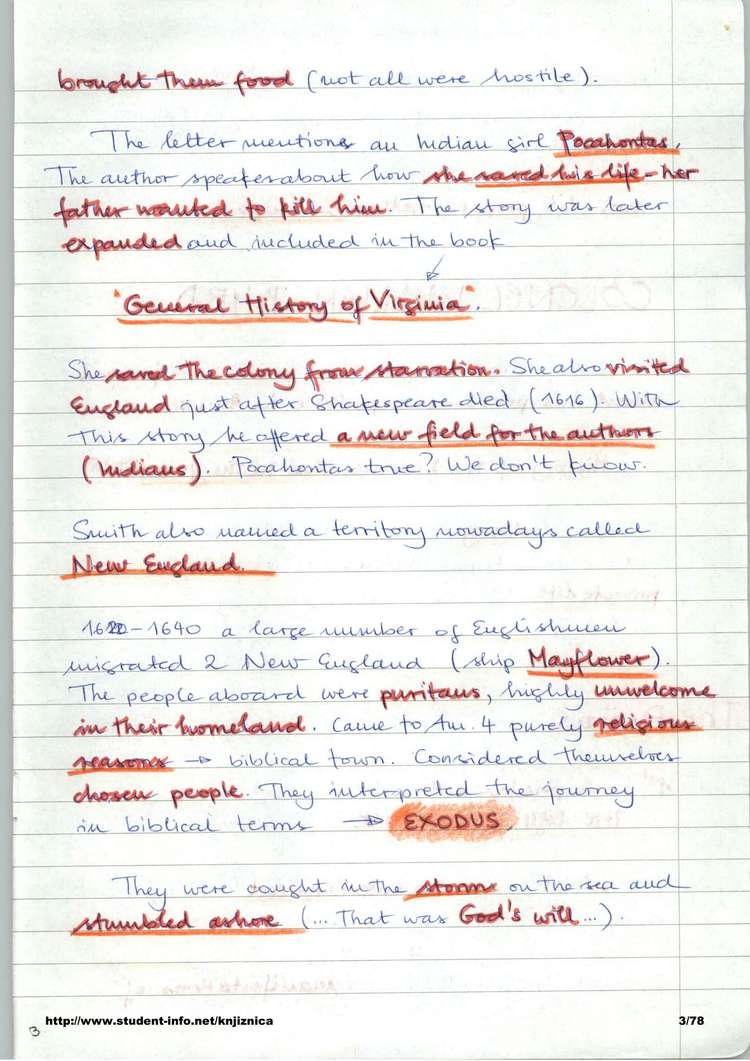 brought them food (not all were hostile).
The letter mentions an Indian girl Pocahontas.
The author speakes about how she saved his life - her
father wanted to kill him. The story was later
expanded and included in the book
"General History of Virginia".
She saved the colony from starvation. She also visited
England just after Shakespeare died (1616). With
this story he offered a new field for the authors
(Indians). Pocahontas true? We don't know.
Smith also named a territory nowadays called
New England.
1620-1640 a large number of Englishmen
migrated 2 New England (ship Mayflower).
The people aboard were puritans, highly unwelcome
in their homeland. Came to Am. 4 purely religious
reasons → biblical town. Considered themselves
chosen people. They interpreted the journey
in biblical terms → EXODUS.
They were caught in the storm on the sea and
stumbled ashore (... That was God's will ...).
http://www.student-info.net/knjiznica 3/78
3